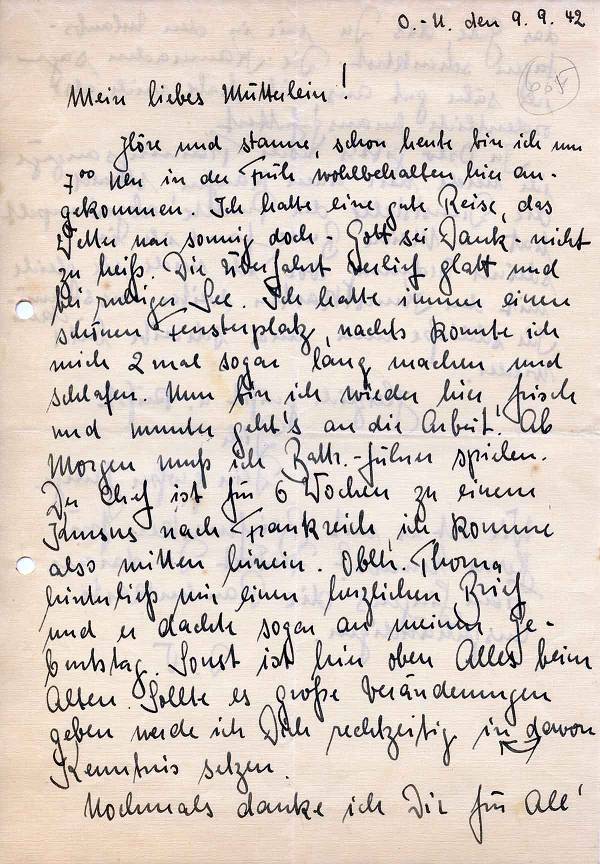 O.-U. den 9. 9. 42
Mein liebes Mütterlein!
Höre und staune, schon heute bin ich um
7⁰⁰ Uhr in der Früh wohlbehalten hier an-
gekommen. Ich hatte eine gute Reise, das
Wetter war sonnig doch - Gott sei Dank - nicht
zu heiß. Die Überfahrt verlief glatt und
bei ruhiger See. Ich hatte immer einen
schönen Fensterplatz, nachts konnte ich
mich 2 mal sogar lang machen und
schlafen. Nun bin ich wieder hier, frisch
und munter geht's an die Arbeit! Ab
Morgen muß ich Battr.-Führer spielen.
Der Chef ist für 6 Wochen zu einem
nach Frankreich, ich komme
also mitten hinein. Oblt. Thoma
hinterließ mir einen herzlichen Brief
und er dachte sogar an meinen Ge-
burtstag. Sonst ist hier oben Alles beim
Alten. Sollte es große Veränderungen
geben werde ich Dich rechtzeitig in davon
Kenntnis setzen.
Nochmals danke ich Dir für All'